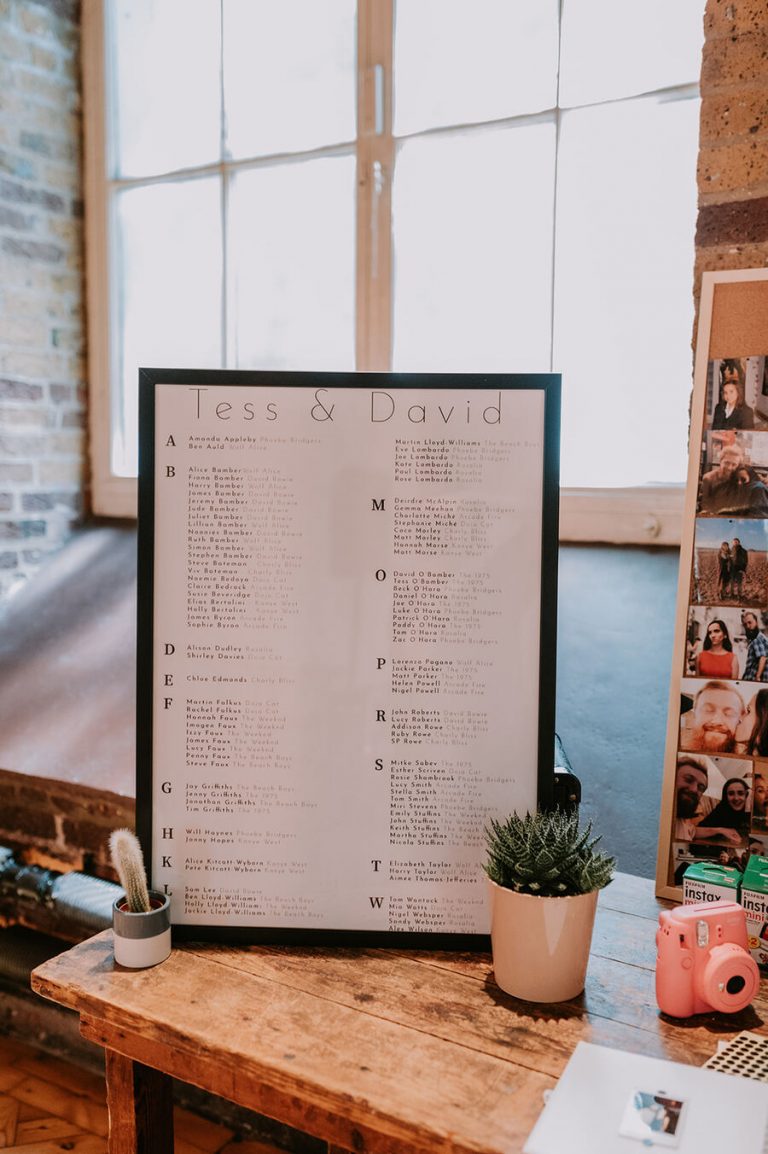 Tess & David
A
Amanda Appleby Phoebe Bridgers
Ben Auld Wolf Alice
B
Alice Bamber Wolf Alice
Fiona Bamber David Bowie
Harry Bamber Wolf Alice
James Bamber David Bowie
Jeremy Bamber David Bowie
Jude Bamber David Bowie
Juliet Bamber David Bowie
Lillian Bamber Wolf Alice
Nonnies Bamber David Bowie
Ruth Bamber Wolf Alice
Simon Bamber Wolf Alice
Stephen Bamber David Bowie
Steve Bateman Charly Bliss
Viv Bateman Charly Bliss
Noemie Bedoya Doja Cat
Claire Bedrock Arcade Fire
Susie Beveridge Doja Cat
Elias Bertolini Kanye West
Holly Bertolini Kanye West
James Byron Arcade Fire
Sophie Byron Arcade Fire
D
Alison Dudley Rosalia
Shirley Davies Doja Cat
E
Chloe Edmonds Charly Bliss
F
Martin Fulkus Doja Cat
Rachel Fulkus Doja Cat
Hannah Faux The Weeknd
Imogen Faux The Weeknd
Izzy Faux The Weeknd
James Faux The Weeknd
Lucy Faux The Weeknd
Penny Faux The Beach Boys
Steve Faux The Beach Boys
G
Jay Griffiths The Beach Boys
Jenny Griffiths The 1975
Jonathan Griffiths The Beach Boys
Tim Griffiths The 1975
H
Will Haynes Phoebe Bridgers
Jonny Hopes Kanye West
K
Alice Kitcatt-Wyborn Kanye West
Pete Kitcatt-Wyborn Kanye West
L
Sam Lee David Bowie
Ben Lloyd-Williams The Beach Boys
Holly Lloyd-Williams The Weeknd
Jackie Lloyd-Williams The Beach Boys
Martin Lloyd-Williams The Beach Boys
Eve Lombardo Phoebe Bridgers
Joe Lombardo Phoebe Bridgers
Kate Lombardo Rosalia
Paul Lombardo Rosalia
Rose Lombardo Rosalia
M
Deirdre McAlpin Rosalia
Gemma Meehan Phoebe Bridgers
Charlotte Miché Arcade Fire
Stephanie Miché Doja Cat
Coco Morley Charly Bliss
Matt Morley Charly Bliss
Hannah Morse Kanye West
Matt Morse Kanye West
O
David O'Bamber The 1975
Tess O'Bamber The 1975
Beck O'Hara Phoebe Bridgers
Daniel O'Hara Rosalia
Joe O'Hara The 1975
Luke O'Hara Phoebe Bridgers
Patrick O'Hara Rosalia
Paddy O'Hara The 1975
Tom O'Hara Rosalia
Zac O'Hara Phoebe Bridgers
P
Lorenzo Pagano Wolf Alice
Jackie Parker The 1975
Matt Parker The 1975
Helen Powell Arcade Fire
Nigel Powell Arcade Fire
R
John Roberts David Bowie
Lucy Roberts David Bowie
Addison Rowe Charly Bliss
Ruby Rowe Charly Bliss
SP Rowe Charly Bliss
S
Mitke Sabev The 1975
Esther Scriven Doja Cat
Rosie Shambrook Phoebe Bridgers
Lucy Smith Arcade Fire
Stella Smith Arcade Fire
Tom Smith Arcade Fire
Miri Stevens Phoebe Bridgers
Emily Stuffins The Weeknd
John Stuffins The Weeknd
Keith Stuffins The Beach
Martha Stuffins The Weeknd
Nicola Stuffins The Beach
T
Elizabeth Taylor Wolf Alice
Harry Taylor Wolf Alice
Aimee Thomas-Jefferies
W
Tom Warnock The Weeknd
Mia Watts Doja Cat
Nigel Websper Rosalia
Sandy Websper Rosalia
Alex Wilson Kanye West
FUJIFILM
instax
mini
FUJIFILM
inst
mini